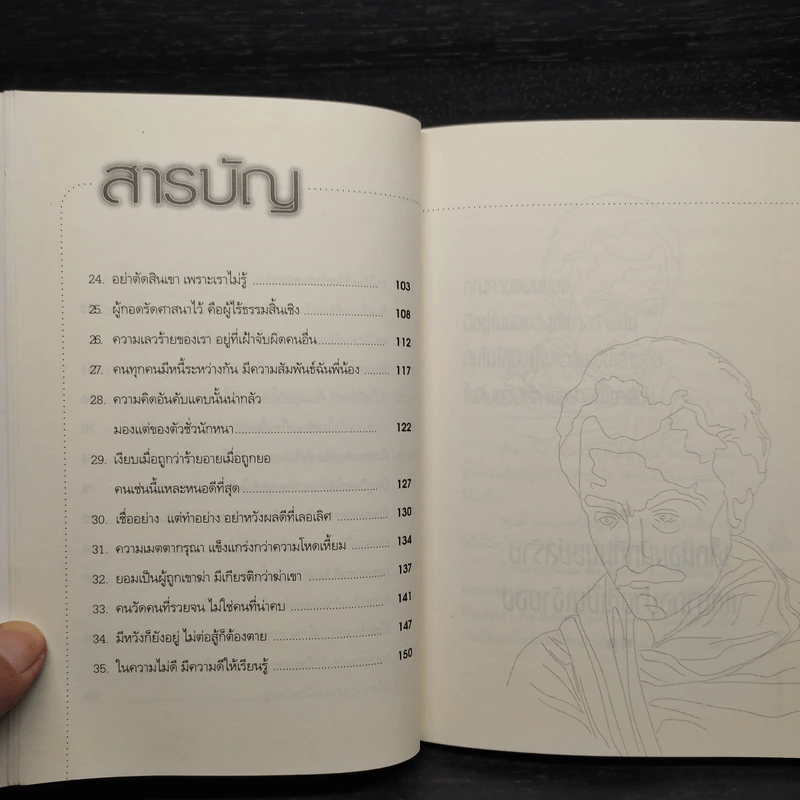 สารบัญ
24. อย่าตัดสินเขา เพราะเราไม่รู้ 103
25. ผู้กอดรัดศาสนาไว้ คือผู้ไร้ธรรมสิ้นเชิง 108
26. ความเลวร้ายของเรา อยู่ที่เฝ้าจับผิดคนอื่น 112
27. คนทุกคนมีหนี้ระหว่างกัน มีความสัมพันธ์ฉันพี่น้อง 117
28. ความคิดอันคับแคบนั้นน่ากลัว
มองแต่ของตัวชั่วนักหนา 122
29. เงียบเมื่อถูกว่าร้ายอายเมื่อถูกยอ
คนเช่นนี้แหละหนอดีที่สุด 127
30. เชื่ออย่าง แต่ทำอย่าง อย่าหวังผลดีที่เลอเลิศ 130
31. ความเมตตากรุณา แข็งแกร่งกว่าความโหดเหี้ยม 134
32. ยอมเป็นผู้ถูกเขาฆ่า มีเกียรติกว่าฆ่าเขา 137
33. คนวัดคนที่รวยจน ไม่ใช่คนที่น่าคบ 141
34. มีหวังก็ยังอยู่ ไม่ต่อสู้ก็ต้องตาย 147
35. ในความไม่ดี มีความดีให้เรียนรู้ 150